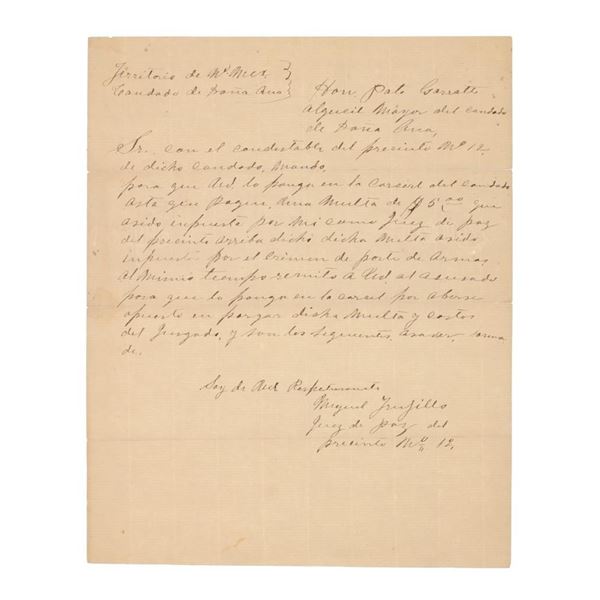 Territorio de Nº Mex }
Candado de Doña Ana }
Hon. Pate Garratt
Algucil Mayor del candado
de Dona Ana,
Sr. con el condestable del precinto Nº 12
de dicho candado, Mando,
para que Ud. lo ponga en la carsel del candado
asta que pague, una Multa de $5.00 que
asido inpuesta por Mi como Juez de paz
del precinto arriba dicho dicha Multa asido
inpuesta por el Crimen de porte de Armas
al Mismo tiempo remito a Ud. al acusado
para que lo ponga en la carsel por aberse
opuesto en pagar dicha Multa y costos
del Juzgado, y son los siguientes, asader, suma
de.
Soy de Ud Respetuosamente
Miguel Trujillo
Juez de paz del
precinto Nº 12,